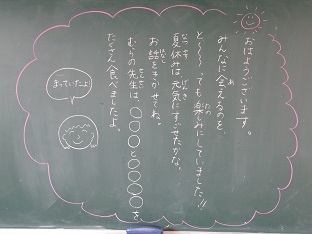 おはようございます。
みんなに会えるのを、
と〜〜っても楽しみにしていました!!
夏休みは、元気にすごせたかな。
お話をきかせてね。
むらの先生は、〇〇〇と〇〇〇〇〇を
たくさん食べましたよ。
まっていたよ